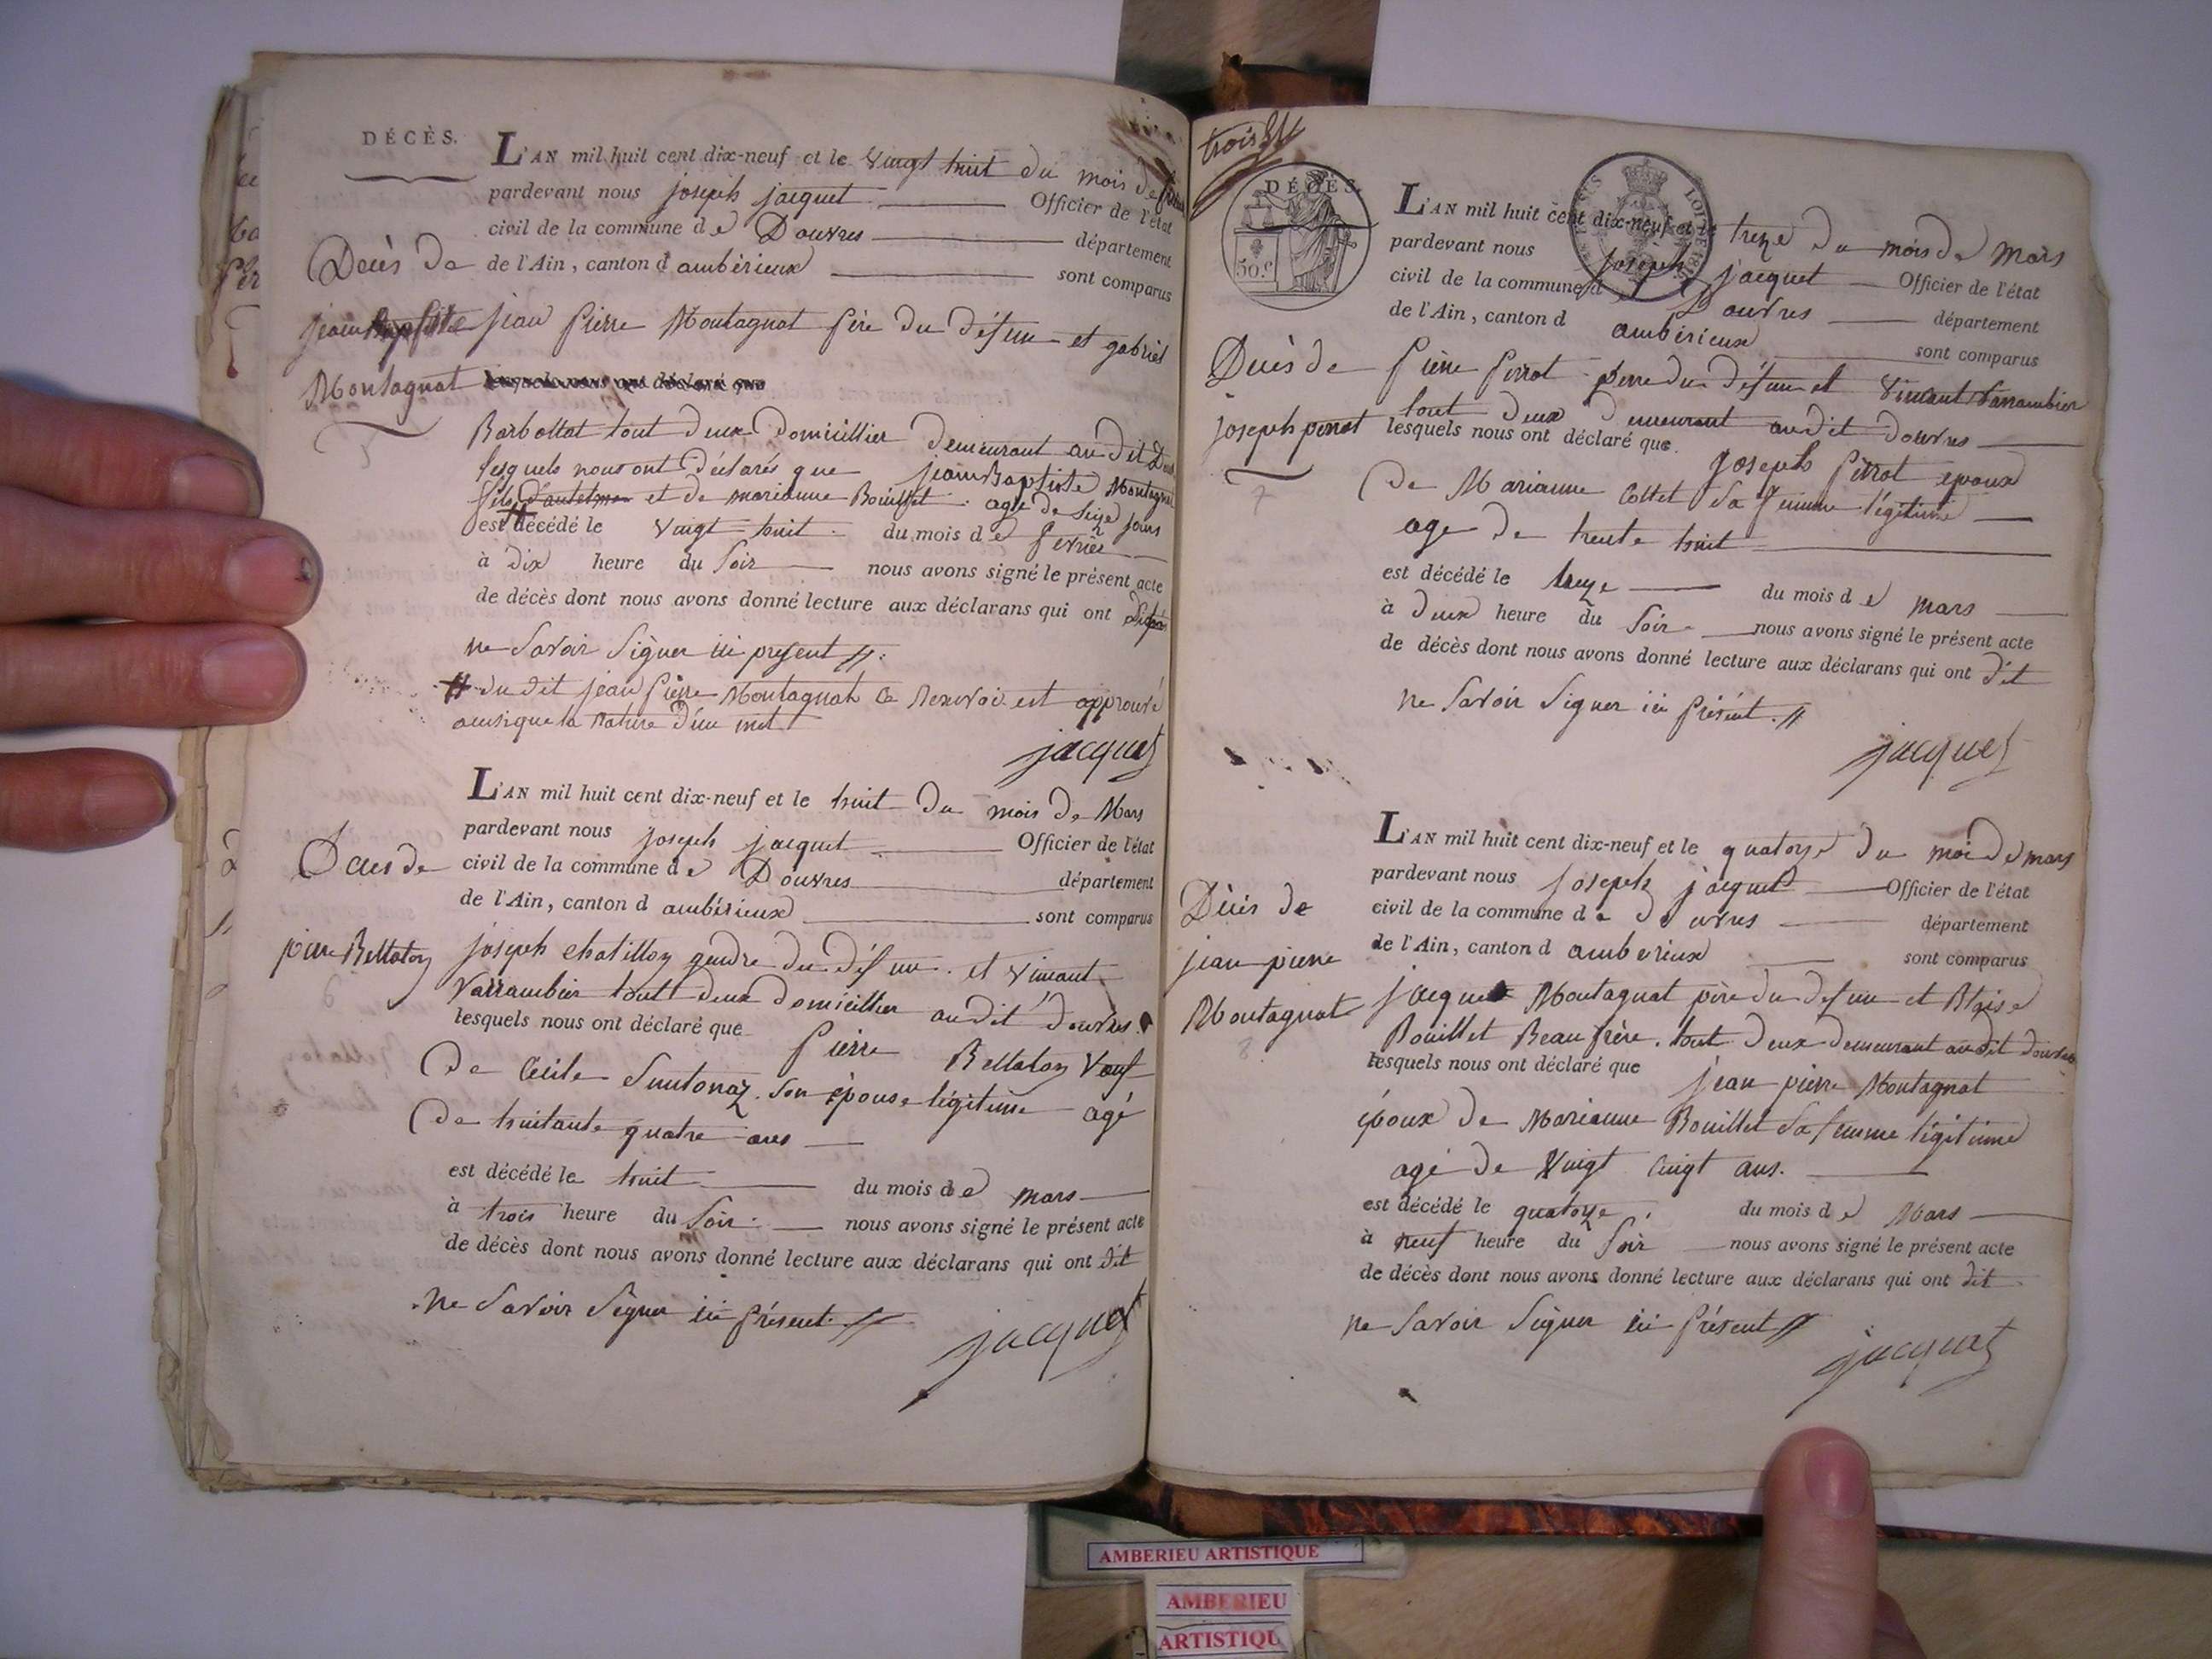 DÉCÈS.
L'AN mil huit cent dix-neuf et le Vingt huit du mois de
pardevant nous joseph jacquet Officier de l'état
civil de la commune de Douvres département
Décès de
de l'Ain, canton d ambérieux sont comparus
jean
jean pierre Montagnat père du défun et gabriel
Montagnat
lesquels nous ont déclaré que
Barbottat tout deux Domicillier demeurant audit
lesquels nous ont déclarés que jean Baptiste Montagna
fils et de marianne Bouillet agé de Seize jours
est décédé le vingt huit du mois de fevrier
à dix heure du soir nous avons signé le présent acte
de décès dont nous avons donné lecture aux déclarans qui ont
ne savoir signer ici present //.
# du dit jean pierre Montagnat Ce Renvoi est approuvé
ainsique la Rature d'un mot
jacquet
L'AN mil huit cent dix-neuf et le huit du mois de Mars
pardevant nous joseph jacquet Officier de l'état
Deces de
civil de la commune de Douvres département
de l'Ain, canton d ambérieux sont comparus
pierre Bellaton
6
joseph chatillon gendre du défun et vincent
Varrambier tout deux domicillier audit douvres.
lesquels nous ont déclaré que Pierre Bellaton Veuf
De Cécile son épouse légitime agé
De huitante quatre ans
est décédé le huit du mois de mars
à trois heure du soir nous avons signé le présent acte
de décès dont nous avons donné lecture aux déclarans qui ont dit
ne savoir signer ici présent //
jacquet
trois
DÉCÈS.
50.c
L'AN mil huit cent dix-neuf et le treize du mois de Mars
pardevant nous joseph jacquet Officier de l'état
civil de la commune d Douvres département
de l'Ain, canton d ambérieux sont comparus
Décès de
joseph perrot
7
Pierre Pirrot perre du défun et vincent Varrambier
tout deux demeurant audit douvres
lesquels nous ont déclaré que joseph Pirrot epoux
De Marianne Collet sa femme légitime
age de trente huit
est décédé le treize du mois de mars
à deux heure du soir nous avons signé le présent acte
de décès dont nous avons donné lecture aux déclarans qui ont dit
ne savoir signer ici présent. //
jacquet
L'AN mil huit cent dix-neuf et le quatorze du moi de mars
pardevant nous joseph jacquet Officier de l'état
Décès de
civil de la commune de douvres département
jean pierre
de l'Ain, canton d amberieux sont comparus
Montagnat
8
jacque Montagnat père du defun et Blaise
Bouillet Beau frère. tout deux demeurant audit douvres
lesquels nous ont déclaré que jean pierre Montagnat
époux de Marianne Bouillet sa femme légitime
agé de Vingt Cingt ans.
est décédé le quatorze du mois de Mars
à neuf heure du soir nous avons signé le présent acte
de décès dont nous avons donné lecture aux déclarans qui ont dit
ne savoir signer ici présent //
jacquet
AMBERIEU ARTISTIQUE
AMBERIEU
ARTISTIQU